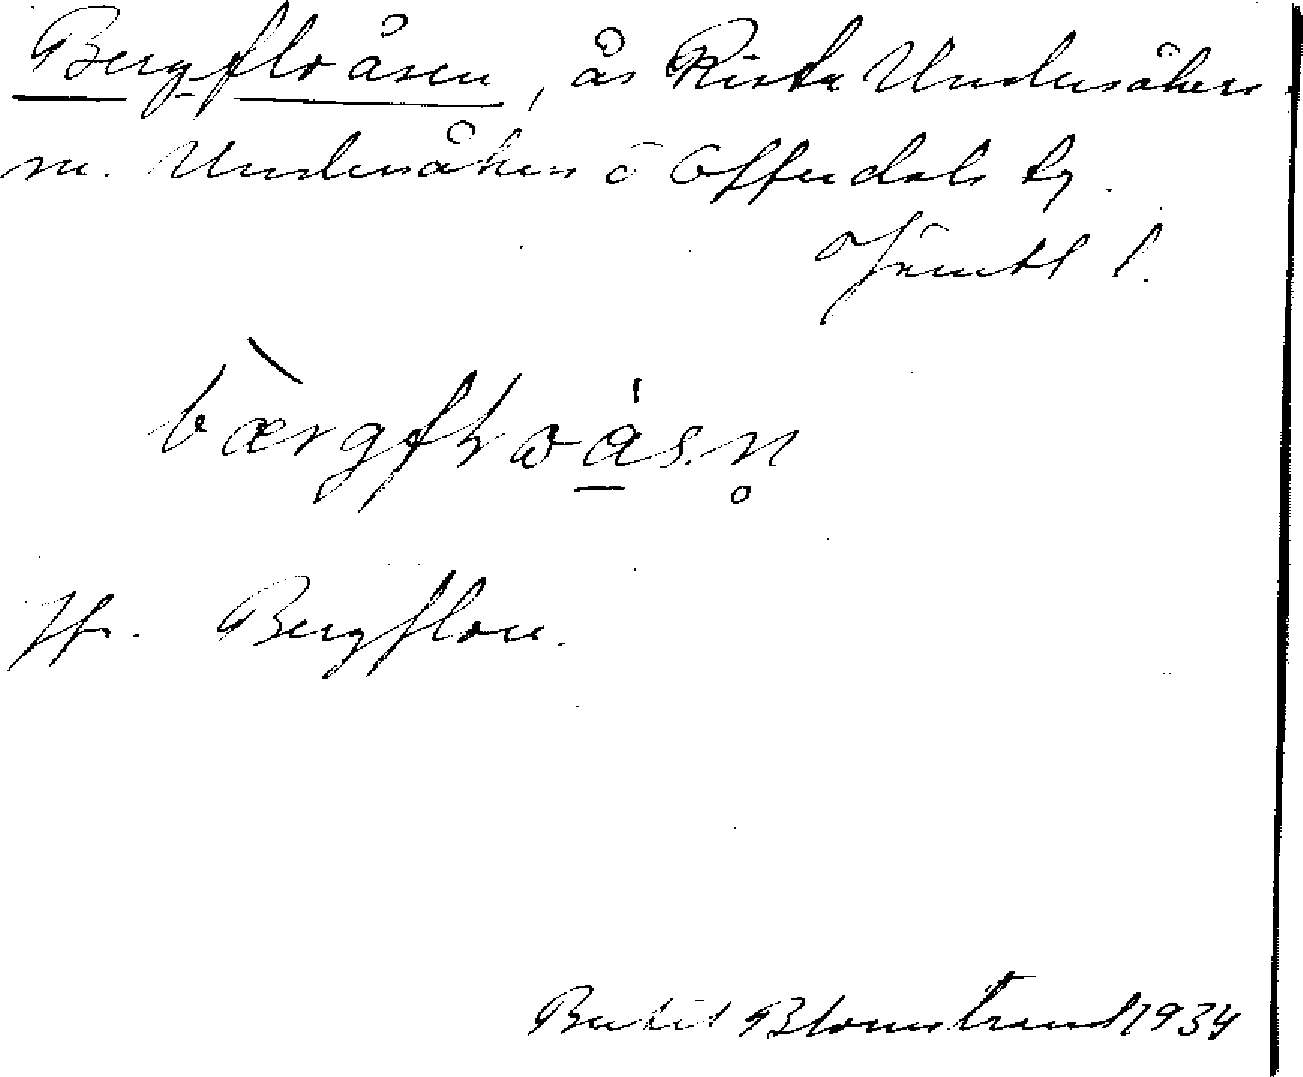 Bergfloåsen, ås Rista Undersåkers
sn. Undersåkers o Offerdals tg.
Jämtl l.
bærgfɬoåsn̥
Jfr. Bergflon.
Bertil Blomstrand 1934